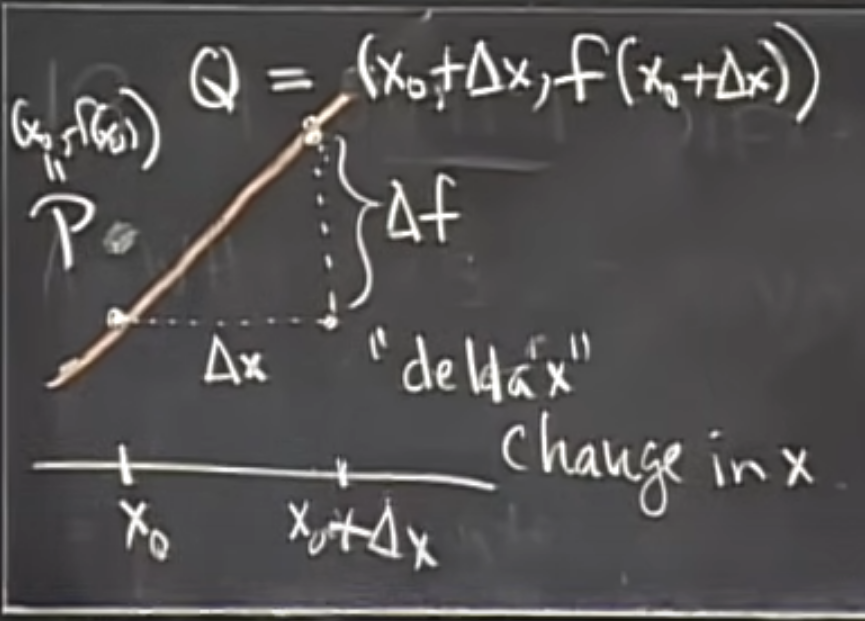 Q = (x₀+Δx, f(x₀+Δx))
(x₀, f(x₀))
||
P
Δf
Δx
"delta x"
change in x
x₀
x₀+Δx